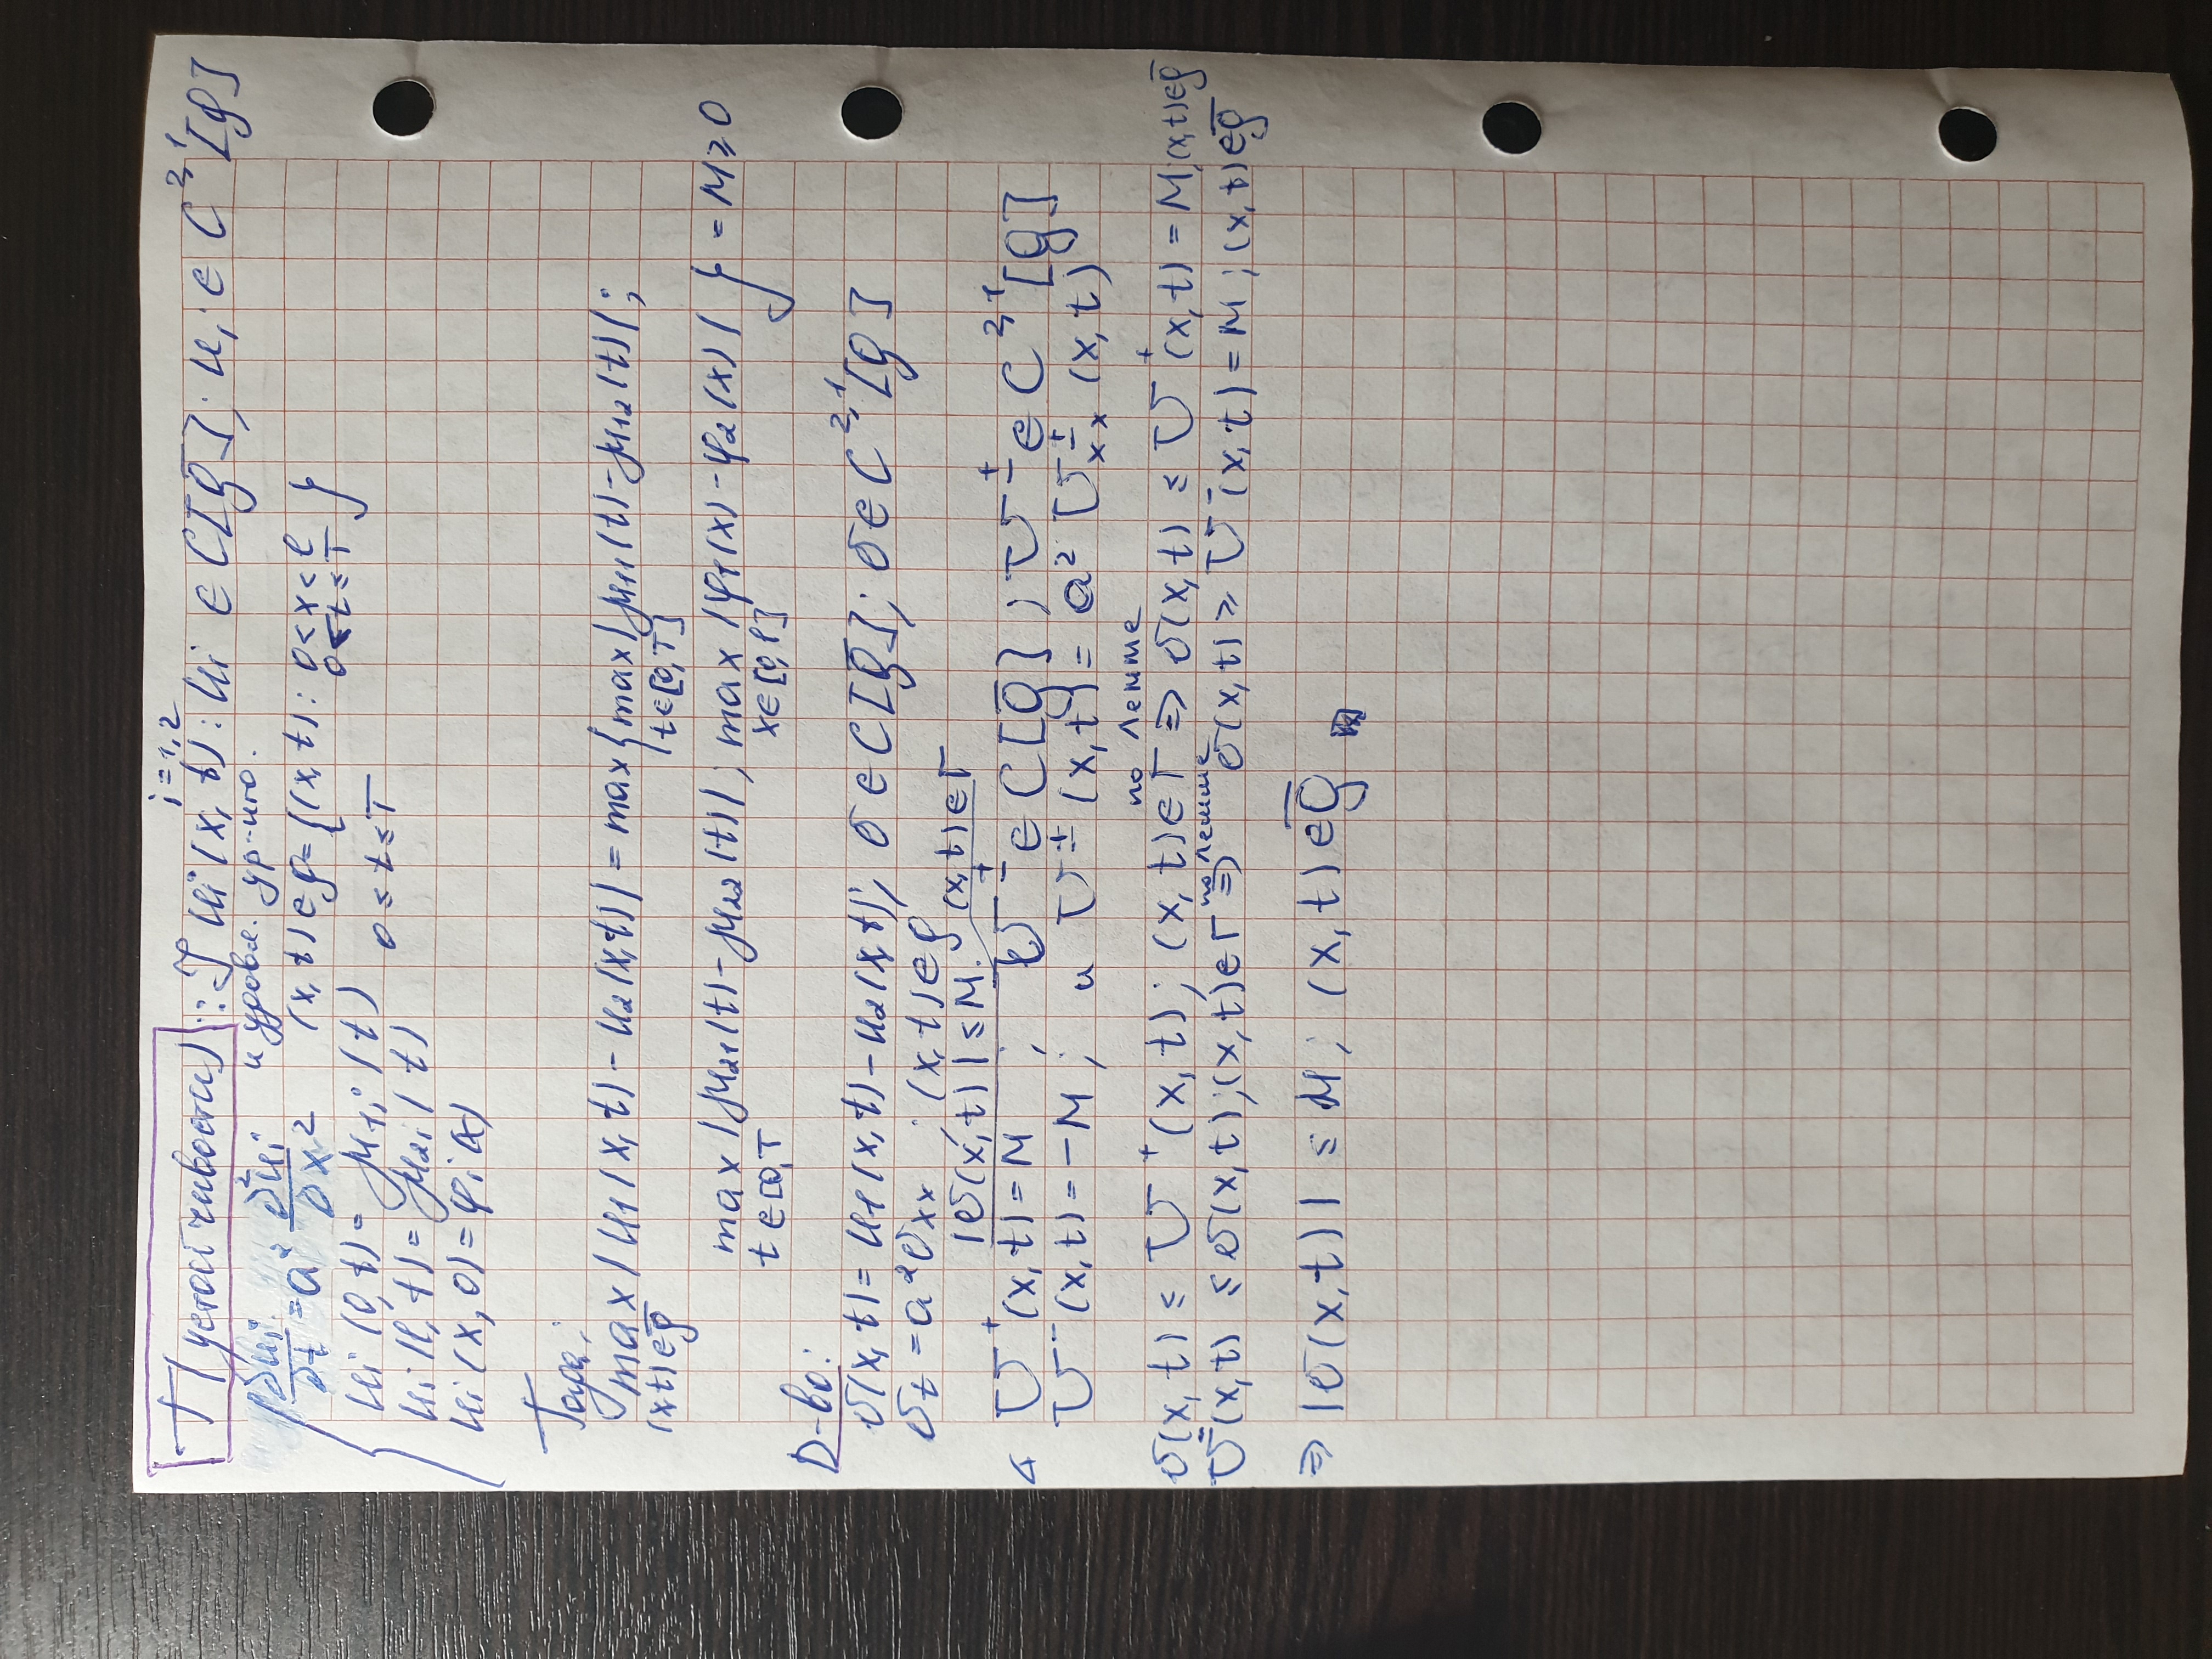 T (устойчивости): ∃ uᵢ(x,t): uᵢ ∈ C[ḡ]; uᵢ ∈ C²,¹[g] i=1,2
и удовл. ур-ию.
∂uᵢ/∂t = a² ∂²uᵢ/∂x² (x,t) ∈ g = {(x,t): 0<x<l 0<t≤T}
uᵢ(0,t) = μ₁ᵢ(t)
uᵢ(l,t) = μ₂ᵢ(t) 0≤t≤T
uᵢ(x,0) = φᵢ(x)
Тогда:
max |u₁(x,t) - u₂(x,t)| = max{max |μ₁₁(t) - μ₁₂(t)|;
(x,t)∈ḡ t∈[0,T]
max |μ₂₁(t) - μ₂₂(t)|; max |φ₁(x) - φ₂(x)|} = M ≥ 0
t∈[0,T x∈[0,l]
D-во:
υ(x,t) = u₁(x,t) - u₂(x,t); υ∈C[ḡ]; υ∈C²,¹[g]
υₜ = a²υₓₓ; (x,t)∈g
|υ(x,t)| ≤ M. (x,t)∈Γ
◁ U⁺(x,t) = M; U± ∈ C[ḡ]; U± ∈ C²,¹[g]
U⁻(x,t) = -M; и U±(x,t) = a² U±ₓₓ(x,t)
υ(x,t) ≤ U⁺(x,t); (x,t)∈Γ ⇒ по лемме υ(x,t) ≤ U⁺(x,t) = M; (x,t)∈ḡ
U⁻(x,t) ≤ υ(x,t); (x,t)∈Γ ⇒ по лемме υ(x,t) ≥ U⁻(x,t) = M; (x,t)∈ḡ
⇒ |υ(x,t)| ≤ M; (x,t)∈ḡ